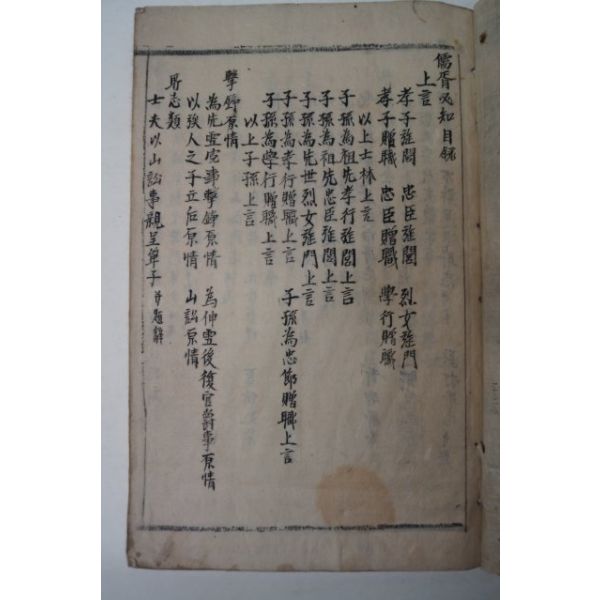 儒胥必知目錄
上言
孝子旌閭 忠臣旌閭 烈女旌門
孝子贈職 忠臣贈職 學行贈職
以上士林上言
子孫為祖先孝行旌閭上言
子孫為祖先忠臣旌閭上言
子孫為先世烈女旌門上言
子孫為孝行贈職上言 子孫為忠節贈職上言
子孫為學行贈職上言
以上子孫上言
擊錚原情
為先靈寃事擊錚原情 為伸雪後復官爵事原情
以後人之子立后原情 山訟原情
所志類
士夫以山訟事親呈單子